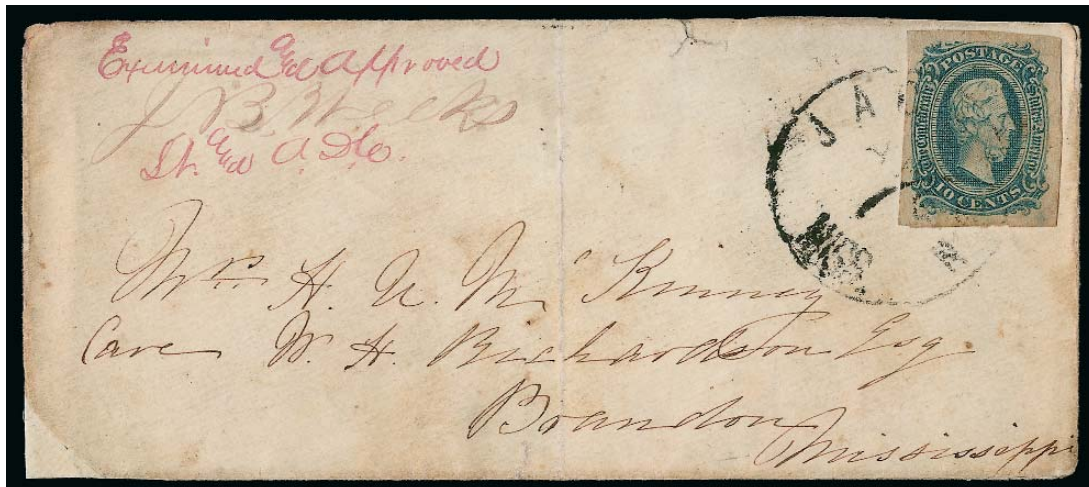 Examined and Approved
J B. Weeks
Lt. and A. D. C.
the Confederate POSTAGE States America
10 CENTS
JAC
MISS
Mrs. H. A. Mc Kinney
Care W. H. Richardson Esq
Brandon
Mississippi